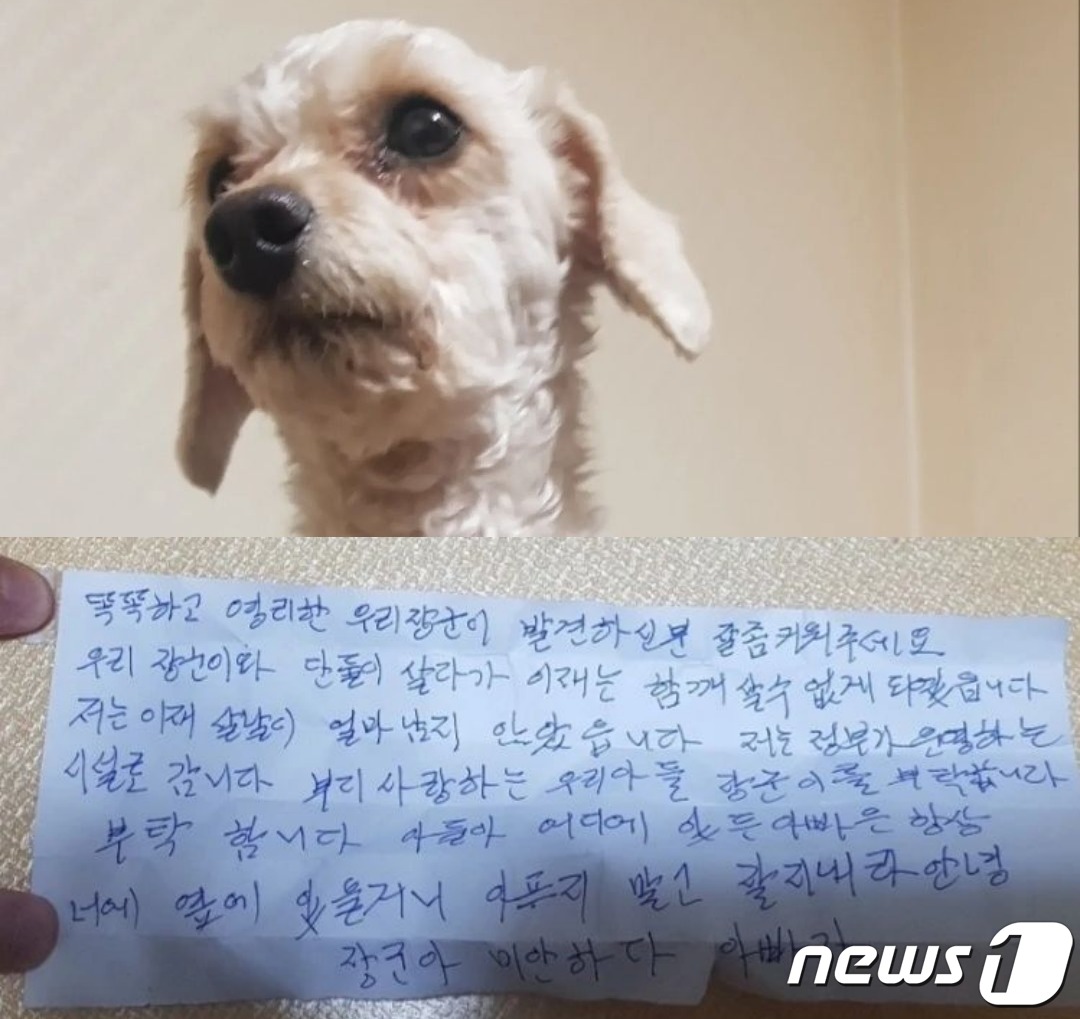 똑똑하고 영리한 우리장군이 발견하신분 잘좀키워주세요
우리 장군이와 단둘이 살다가 이재는 함께 살수 없게 되었읍니다
저는 이재 살날이 얼마남지 안았읍니다 저는 정부가 운영하는
시설로 갑니다 부디사랑하는 우리아들 장군이를 부탁합니다
부탁 합니다 아들아 어디에 있든아빠은 항상
너에 옆에 있을거니 아프지 말고 잘지내라안녕
장군아 미안하다 아빠가
news1